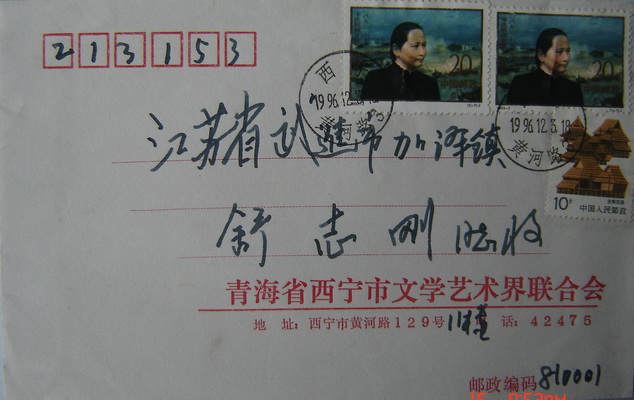 213153
20
20
西
1996.12.
黄河路
1996.12.3.18
黄河路
10分
中国人民邮政
江苏省武进市加泽镇
舒志刚 收
青海省西宁市文学艺术界联合会
地 址:西宁市黄河路129号 话:42475
邮政编码 810001